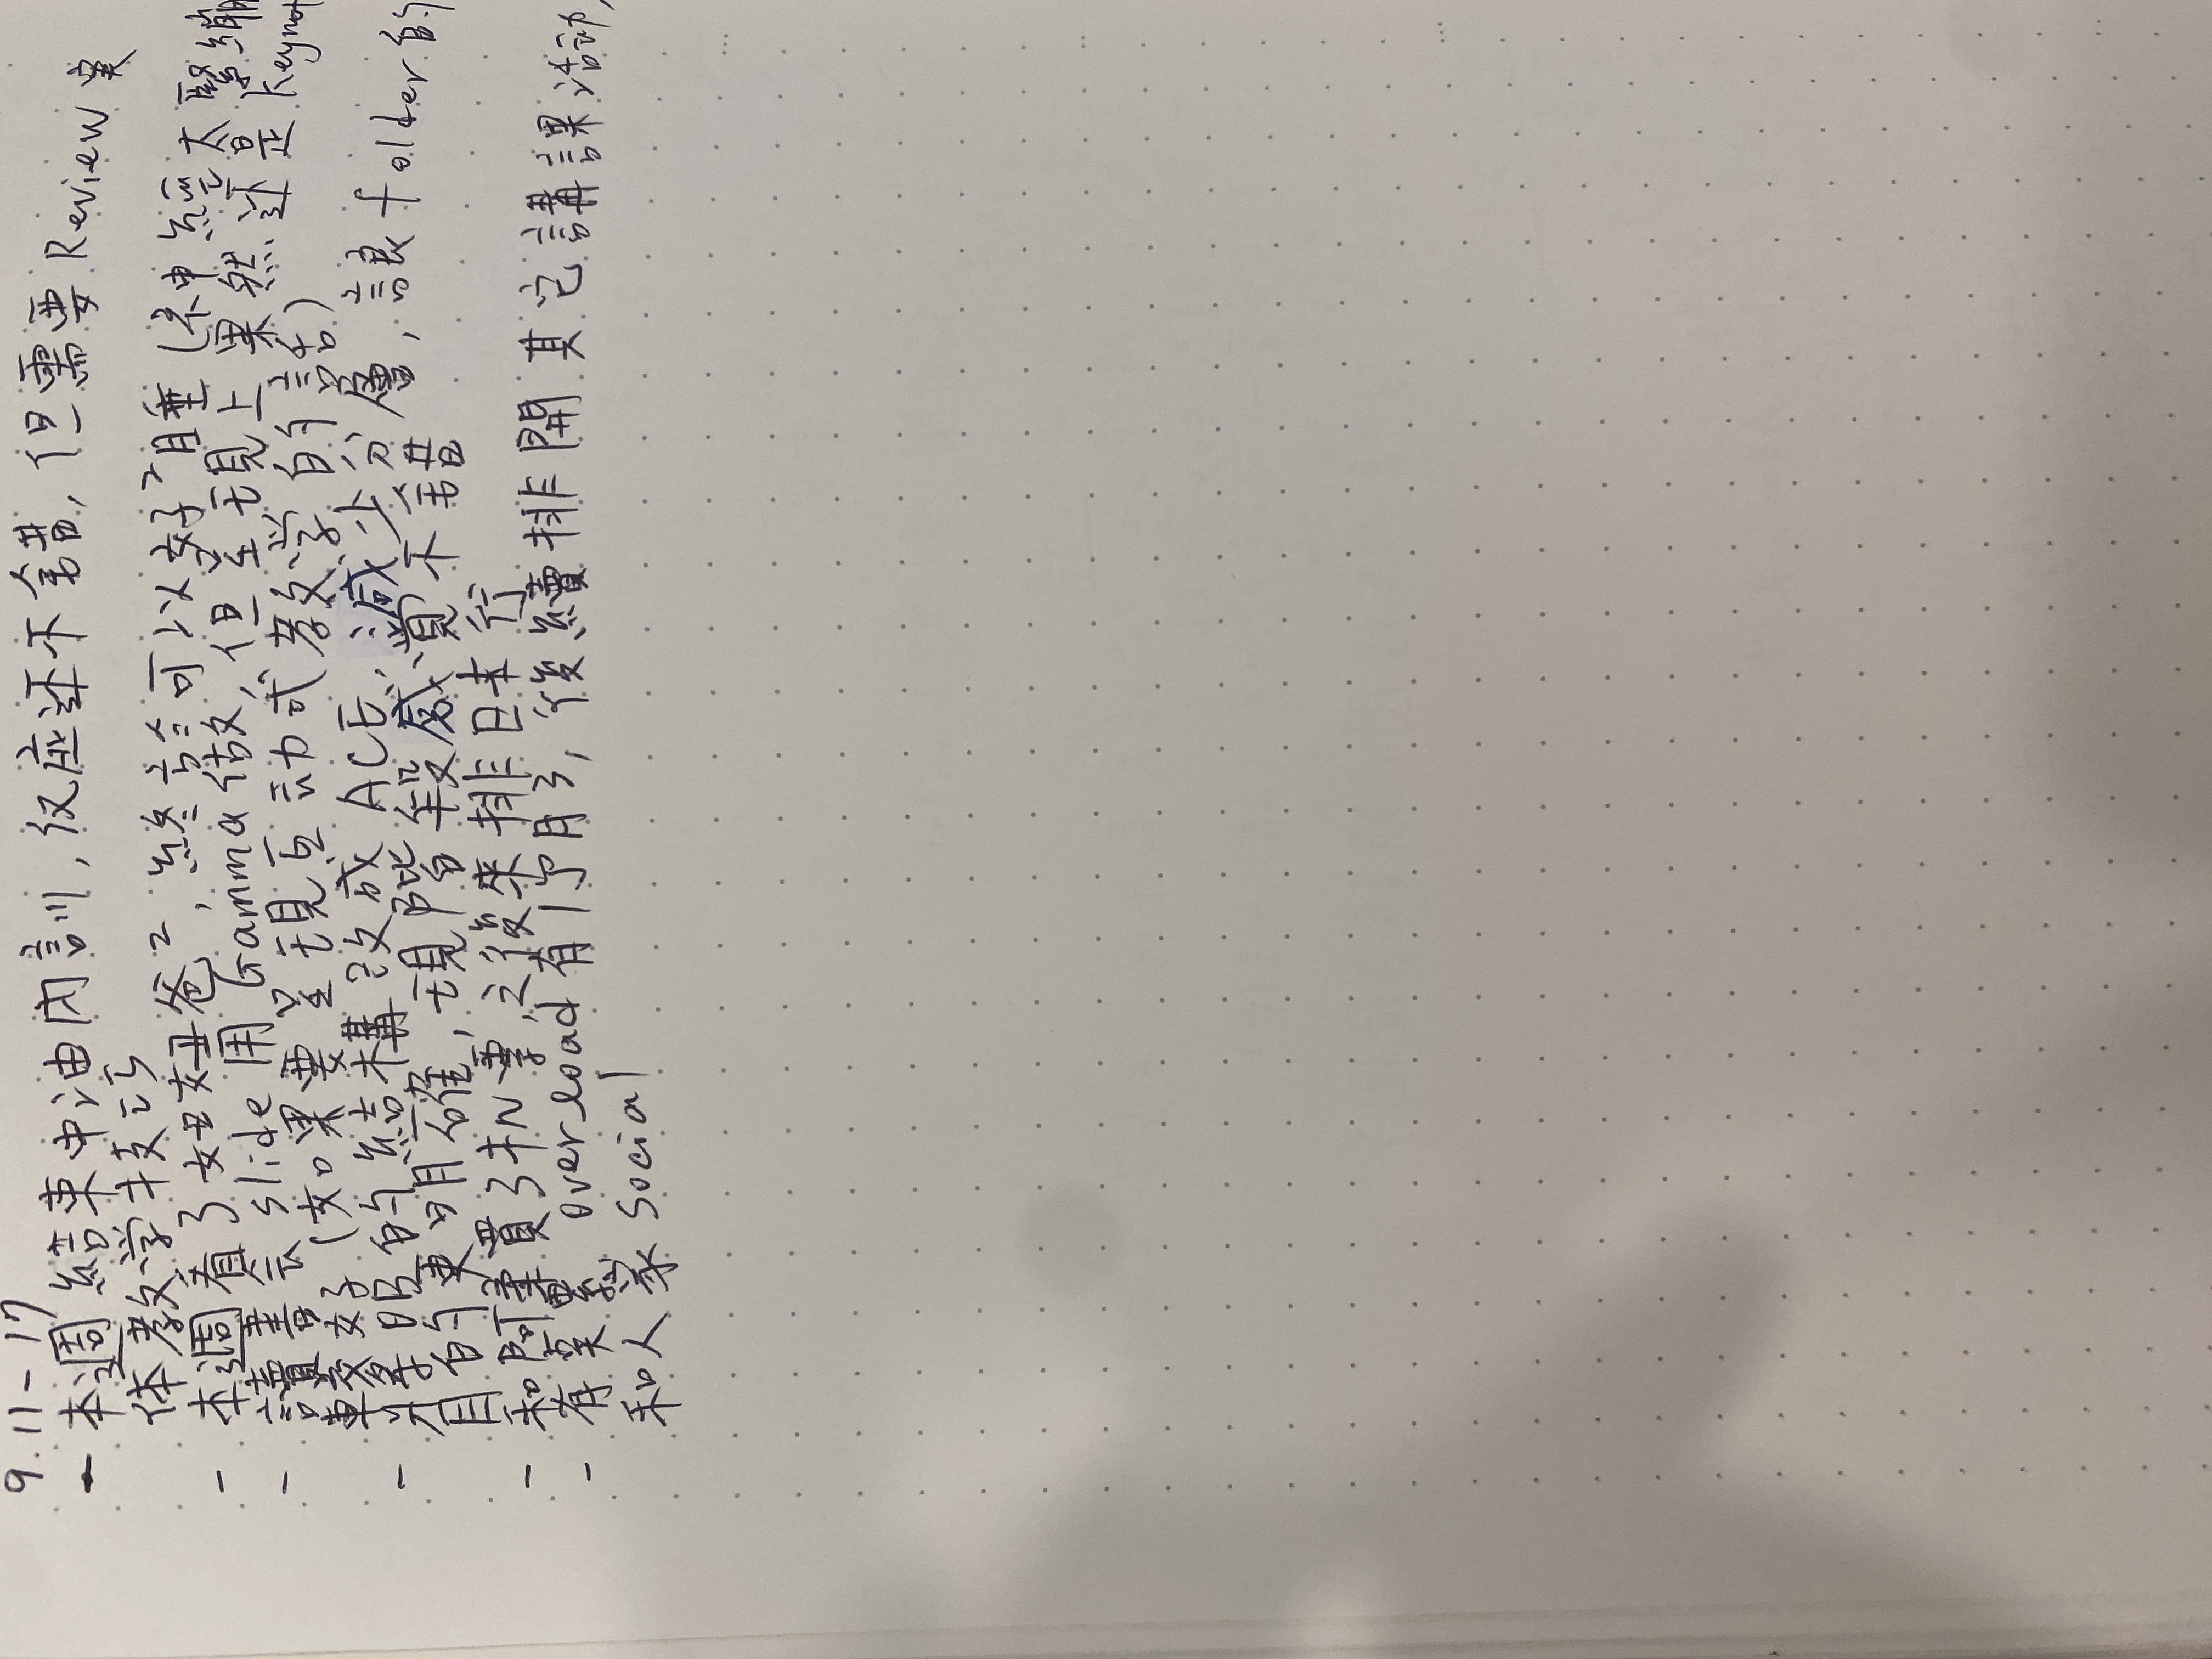 9.11-17
- 本週結束中油內訓, 反应还不錯, 但需要 Review 实
体教学技巧
- 本週看了妞妞爸², 終於可以好²睡 (神經太緊繃
- 讀書会 slide 用 Gamma 做, 但呈現上果然还是 Keynot
較好 (如果要呈現互动式教学的話)
- 的結構改成 ACE, 減少分層, 讓 folder 的
目的更明確, 現階段感覚不錯
- 和阿柔買了机票, 之後來排日本行
- 有莫累 overload 有1个月了, 後續排開其它講課活动,
和人家 Social